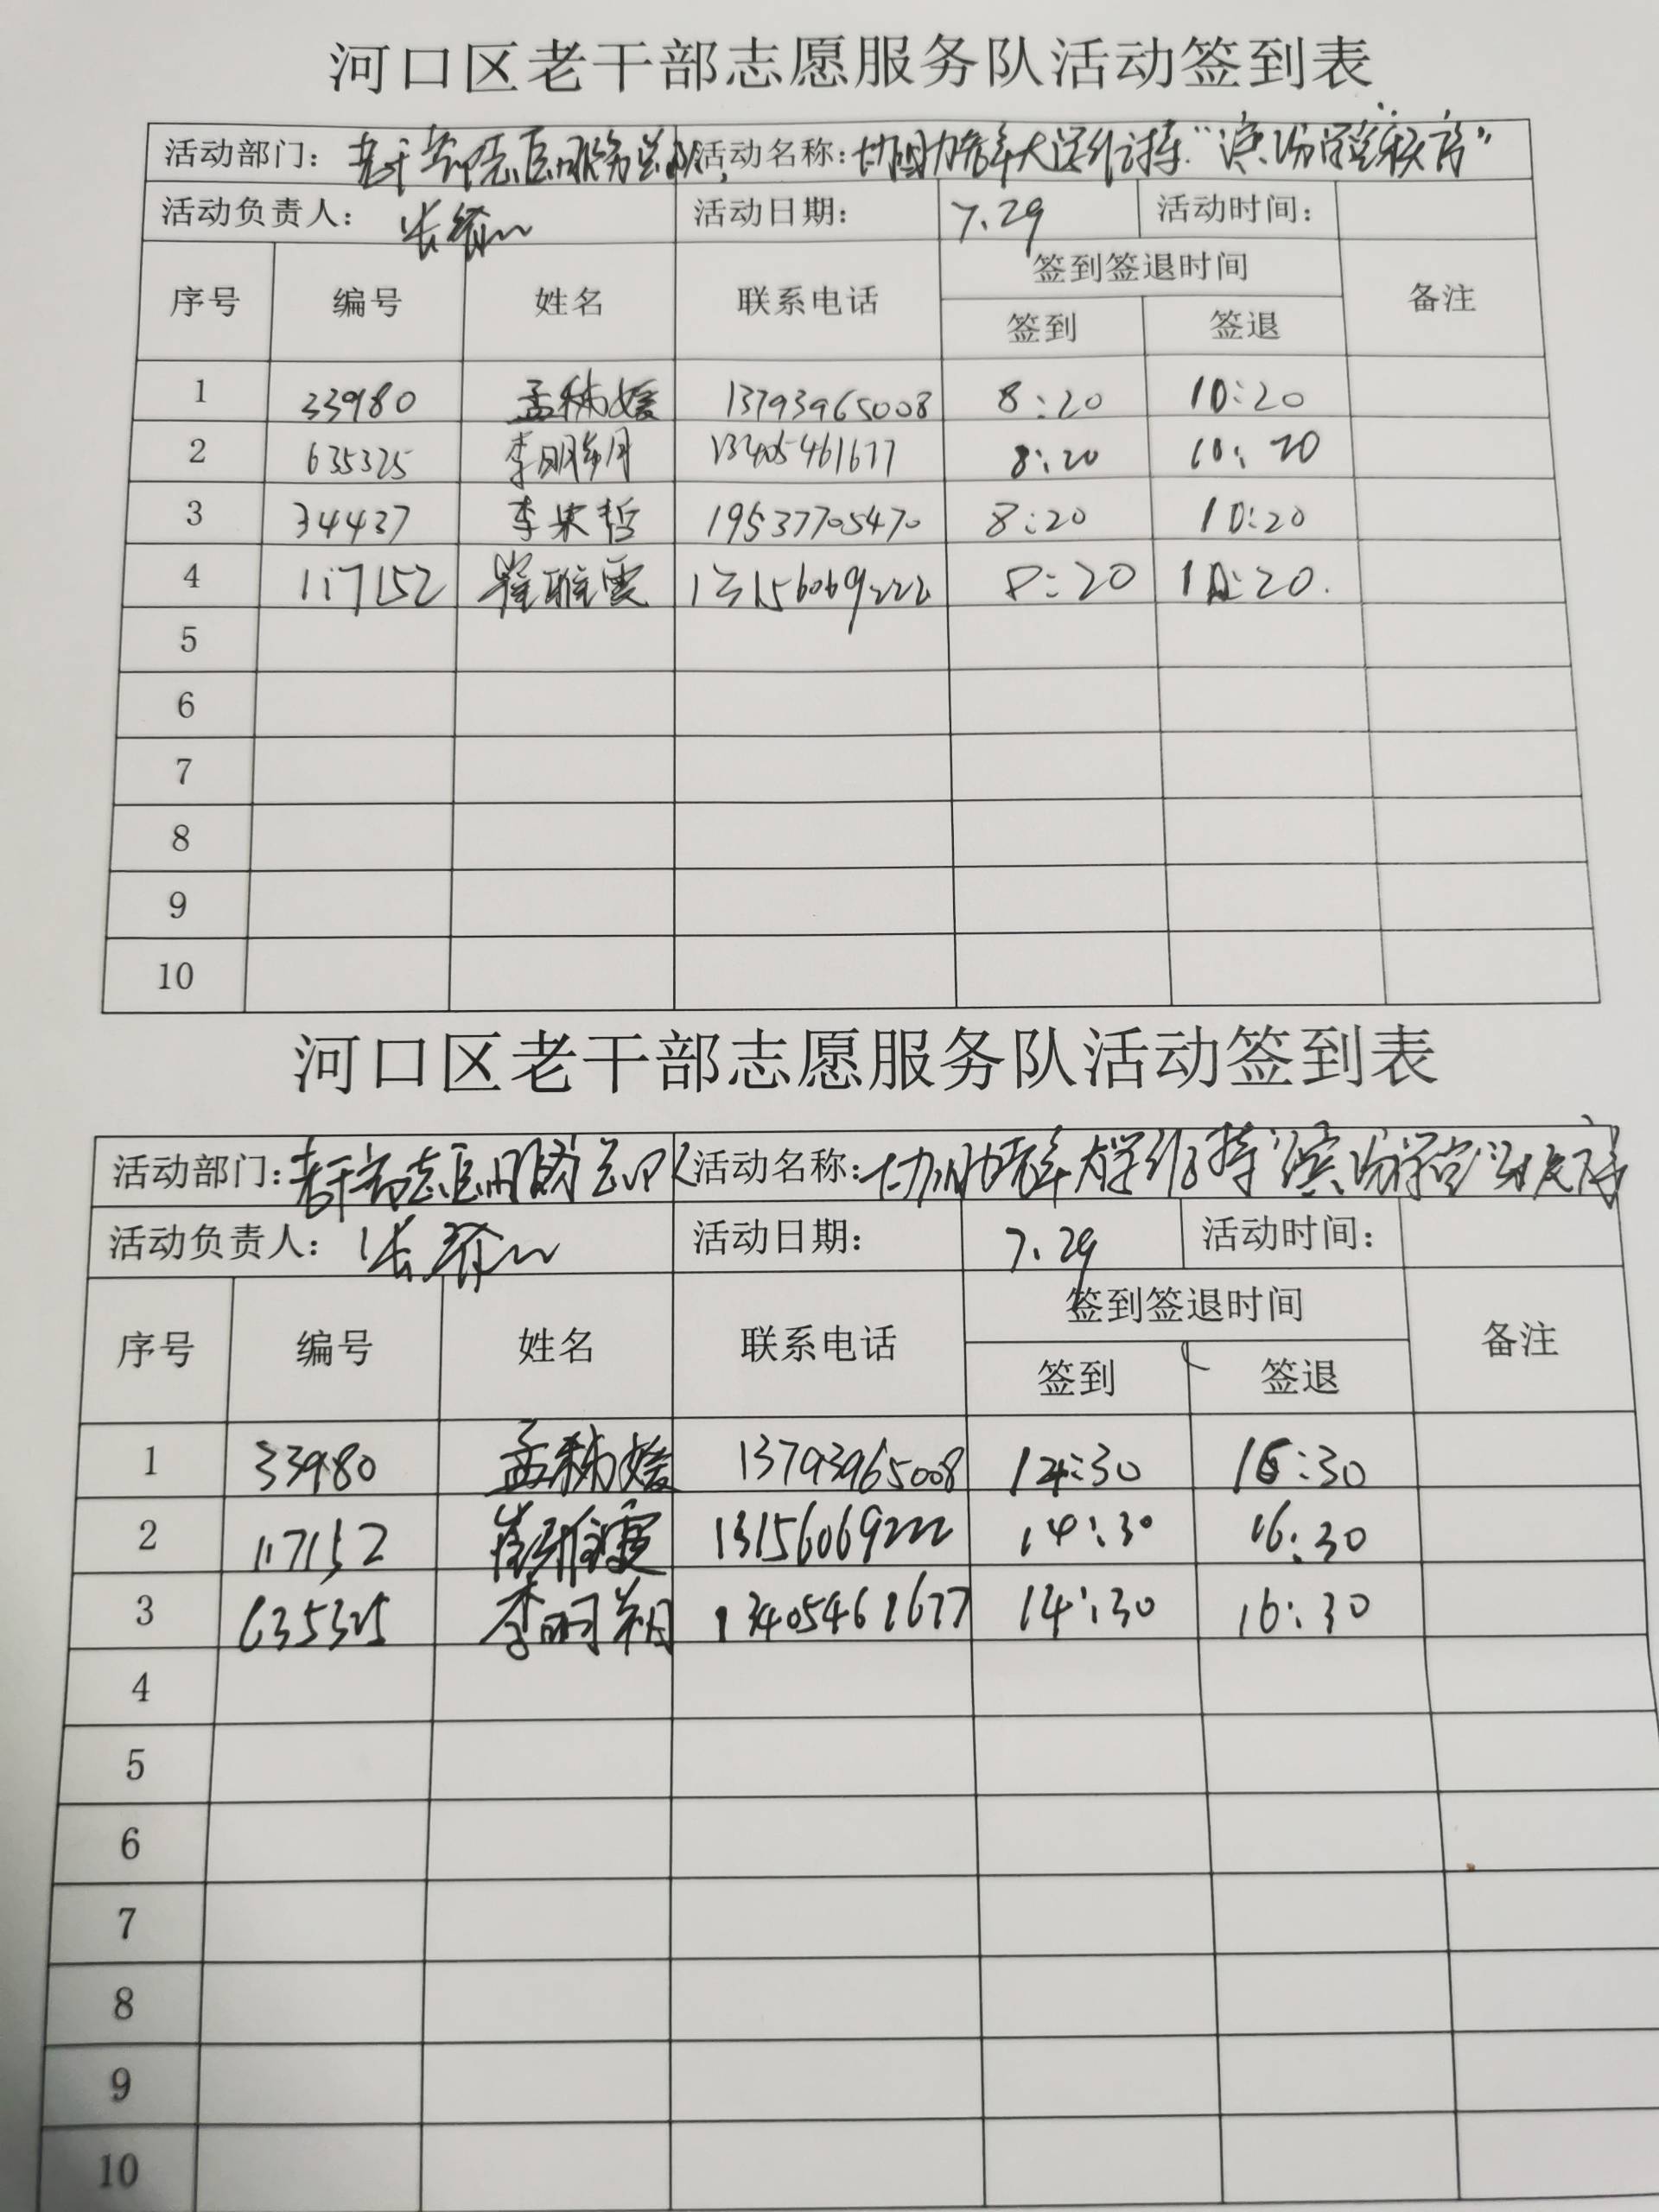 河口区老干部志愿服务队活动签到表
活动部门：老干部志愿服务总队 活动名称：协助老年大学维持“缤纷课堂”秩序”
活动负责人： 活动日期： 7.29 活动时间：
序号 编号 姓名 联系电话 签到签退时间 备注
签到 签退
1 33980 孟秭媛 13793965008 8:20 10:20
2 635325 李明朔 13405461677 8:20 10:20
3 34437 李果哲 19537705470 8:20 10:20
4 117152 崔雅雯 13156069222 8:20 10:20
5
6
7
8
9
10
河口区老干部志愿服务队活动签到表
活动部门：老干部志愿服务总队 活动名称：协助老年大学维持“缤纷课堂”秩序
活动负责人： 活动日期： 7.29 活动时间：
序号 编号 姓名 联系电话 签到签退时间 备注
签到 签退
1 33980 孟秭媛 13793965008 14:30 16:30
2 117152 崔雅雯 13156069222 14:30 16:30
3 635325 李明朔 13405461677 14:30 16:30
4
5
6
7
8
9
10